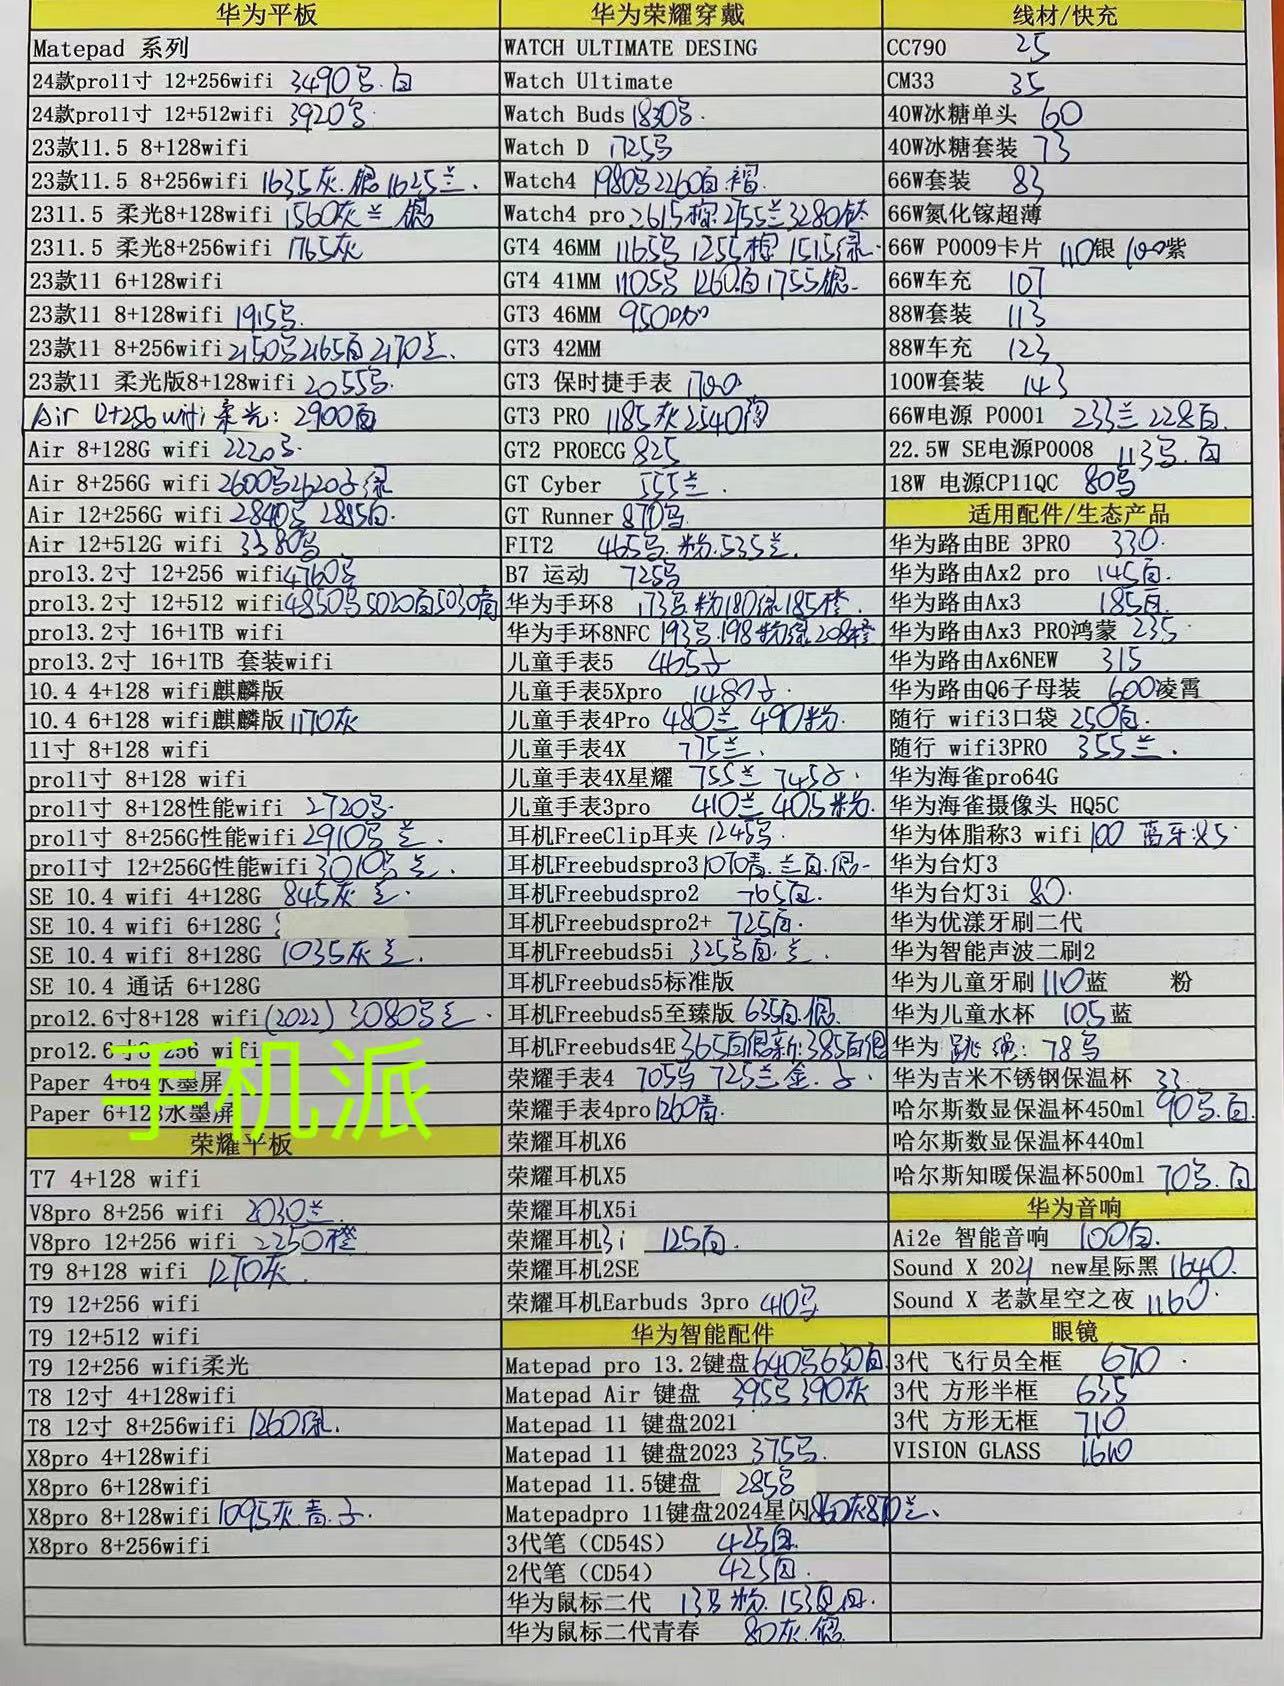 华为平板
Matepad 系列
24款pro11寸 12+256wifi 3490号.白
24款pro11寸 12+512wifi 3920号.
23款11.5 8+128wifi
23款11.5 8+256wifi 1635灰.银 1625兰.
2311.5 柔光8+128wifi 1560灰 兰 银
2311.5 柔光8+256wifi 1765灰
23款11 6+128wifi
23款11 8+128wifi 1915号.
23款11 8+256wifi 2150号2165白2170兰.
23款11 柔光版8+128wifi 2055号.
Air 12+256 wifi 柔光: 2900白
Air 8+128G wifi 2220号.
Air 8+256G wifi 2600号2620子绿
Air 12+256G wifi 2840号 2895白.
Air 12+512G wifi 3380号
pro13.2寸 12+256 wifi4760号
pro13.2寸 12+512 wifi4850号5020白5030青
pro13.2寸 16+1TB wifi
pro13.2寸 16+1TB 套装wifi
10.4 4+128 wifi麒麟版
10.4 6+128 wifi麒麟版1170灰
11寸 8+128 wifi
pro11寸 8+128 wifi
pro11寸 8+128性能wifi 2720号.
pro11寸 8+256G性能wifi2910号 兰.
pro11寸 12+256G性能wifi3010号 兰.
SE 10.4 wifi 4+128G 845灰 兰.
SE 10.4 wifi 6+128G
SE 10.4 wifi 8+128G 1035灰 兰.
SE 10.4 通话 6+128G
pro12.6寸8+128 wifi(2022) 3080号兰.
pro12.6寸8+256 wifi
Paper 4+64水墨屏
Paper 6+128水墨屏
手机派
荣耀平板
T7 4+128 wifi
V8pro 8+256 wifi 2030兰.
V8pro 12+256 wifi 2250橙
T9 8+128 wifi 1270灰.
T9 12+256 wifi
T9 12+512 wifi
T9 12+256 wifi柔光
T8 12寸 4+128wifi
T8 12寸 8+256wifi 1260绿.
X8pro 4+128wifi
X8pro 6+128wifi
X8pro 8+128wifi 1095灰.青.子.
X8pro 8+256wifi
华为荣耀穿戴
WATCH ULTIMATE DESING
Watch Ultimate
Watch Buds 1830号.
Watch D 1725号
Watch4 1980号2260白.褐.
Watch4 pro 2615棕2755兰3280钛
GT4 46MM 1165号 1255棕 1515绿.
GT4 41MM 1105号 1260白1755银.
GT3 46MM 950咖
GT3 42MM
GT3 保时捷手表 1700
GT3 PRO 1185灰2540陶
GT2 PROECG 825
GT Cyber 555兰.
GT Runner 870号.
FIT2 465号.粉.535兰.
B7 运动 725号
华为手环8 173号.粉180绿185橙.
华为手环8NFC 193号.198粉绿208橙
儿童手表5 465子
儿童手表5Xpro 1480子.
儿童手表4Pro 480兰 490粉.
儿童手表4X 775兰.
儿童手表4X星耀 755兰 745子.
儿童手表3pro 410兰 405粉.
耳机FreeClip耳夹 1245号.
耳机Freebudspro3 1070青.兰白.银
耳机Freebudspro2 765白.
耳机Freebudspro2+ 725白.
耳机Freebuds5i 325号白.兰.
耳机Freebuds5标准版
耳机Freebuds5至臻版 635白.银.
耳机Freebuds4E 365白银新:385白银
荣耀手表4 705号 725兰金.子.
荣耀手表4pro 1260青.
荣耀耳机X6
荣耀耳机X5
荣耀耳机X5i
荣耀耳机3i 125白.
荣耀耳机2SE
荣耀耳机Earbuds 3pro 410号
华为智能配件
Matepad pro 13.2键盘640号630白
Matepad Air 键盘 395号390灰
Matepad 11 键盘2021
Matepad 11 键盘2023 375号.
Matepad 11.5键盘 285号
Matepadpro 11键盘2024星闪860灰870兰.
3代笔（CD54S） 425白.
2代笔（CD54） 425白.
华为鼠标二代 粉 153
华为鼠标二代青春 80灰.银.
线材/快充
CC790 25
CM33 35
40W冰糖单头 60
40W冰糖套装 73
66W套装 83
66W氮化镓超薄
66W P0009卡片 110银 100紫
66W车充 107
88W套装 113
88W车充 123
100W套装 143
66W电源 P0001 233兰 228白.
22.5W SE电源P0008 113号.白
18W 电源CP11QC 80号
适用配件/生态产品
华为路由BE 3PRO 330.
华为路由Ax2 pro 145白.
华为路由Ax3 185白.
华为路由Ax3 PRO鸿蒙 235.
华为路由Ax6NEW 315
华为路由Q6子母装 600凌霄
随行 wifi3口袋 250白.
随行 wifi3PRO 355兰.
华为海雀pro64G
华为海雀摄像头 HQ5C
华为体脂称3 wifi 100 蓝牙:85.
华为台灯3
华为台灯3i 80.
华为优漾牙刷二代
华为智能声波二刷2
华为儿童牙刷 110蓝 粉
华为儿童水杯 105蓝
华为 跳绳: 78号
华为吉米不锈钢保温杯 33.
哈尔斯数显保温杯450ml 90号.白.
哈尔斯数显保温杯440ml
哈尔斯知暖保温杯500ml 70号.白
华为音响
Ai2e 智能音响 100白.
Sound X 2021 new星际黑 1640.
Sound X 老款星空之夜 1160.
眼镜
3代 飞行员全框 670.
3代 方形半框 635
3代 方形无框 710
VISION GLASS 1610